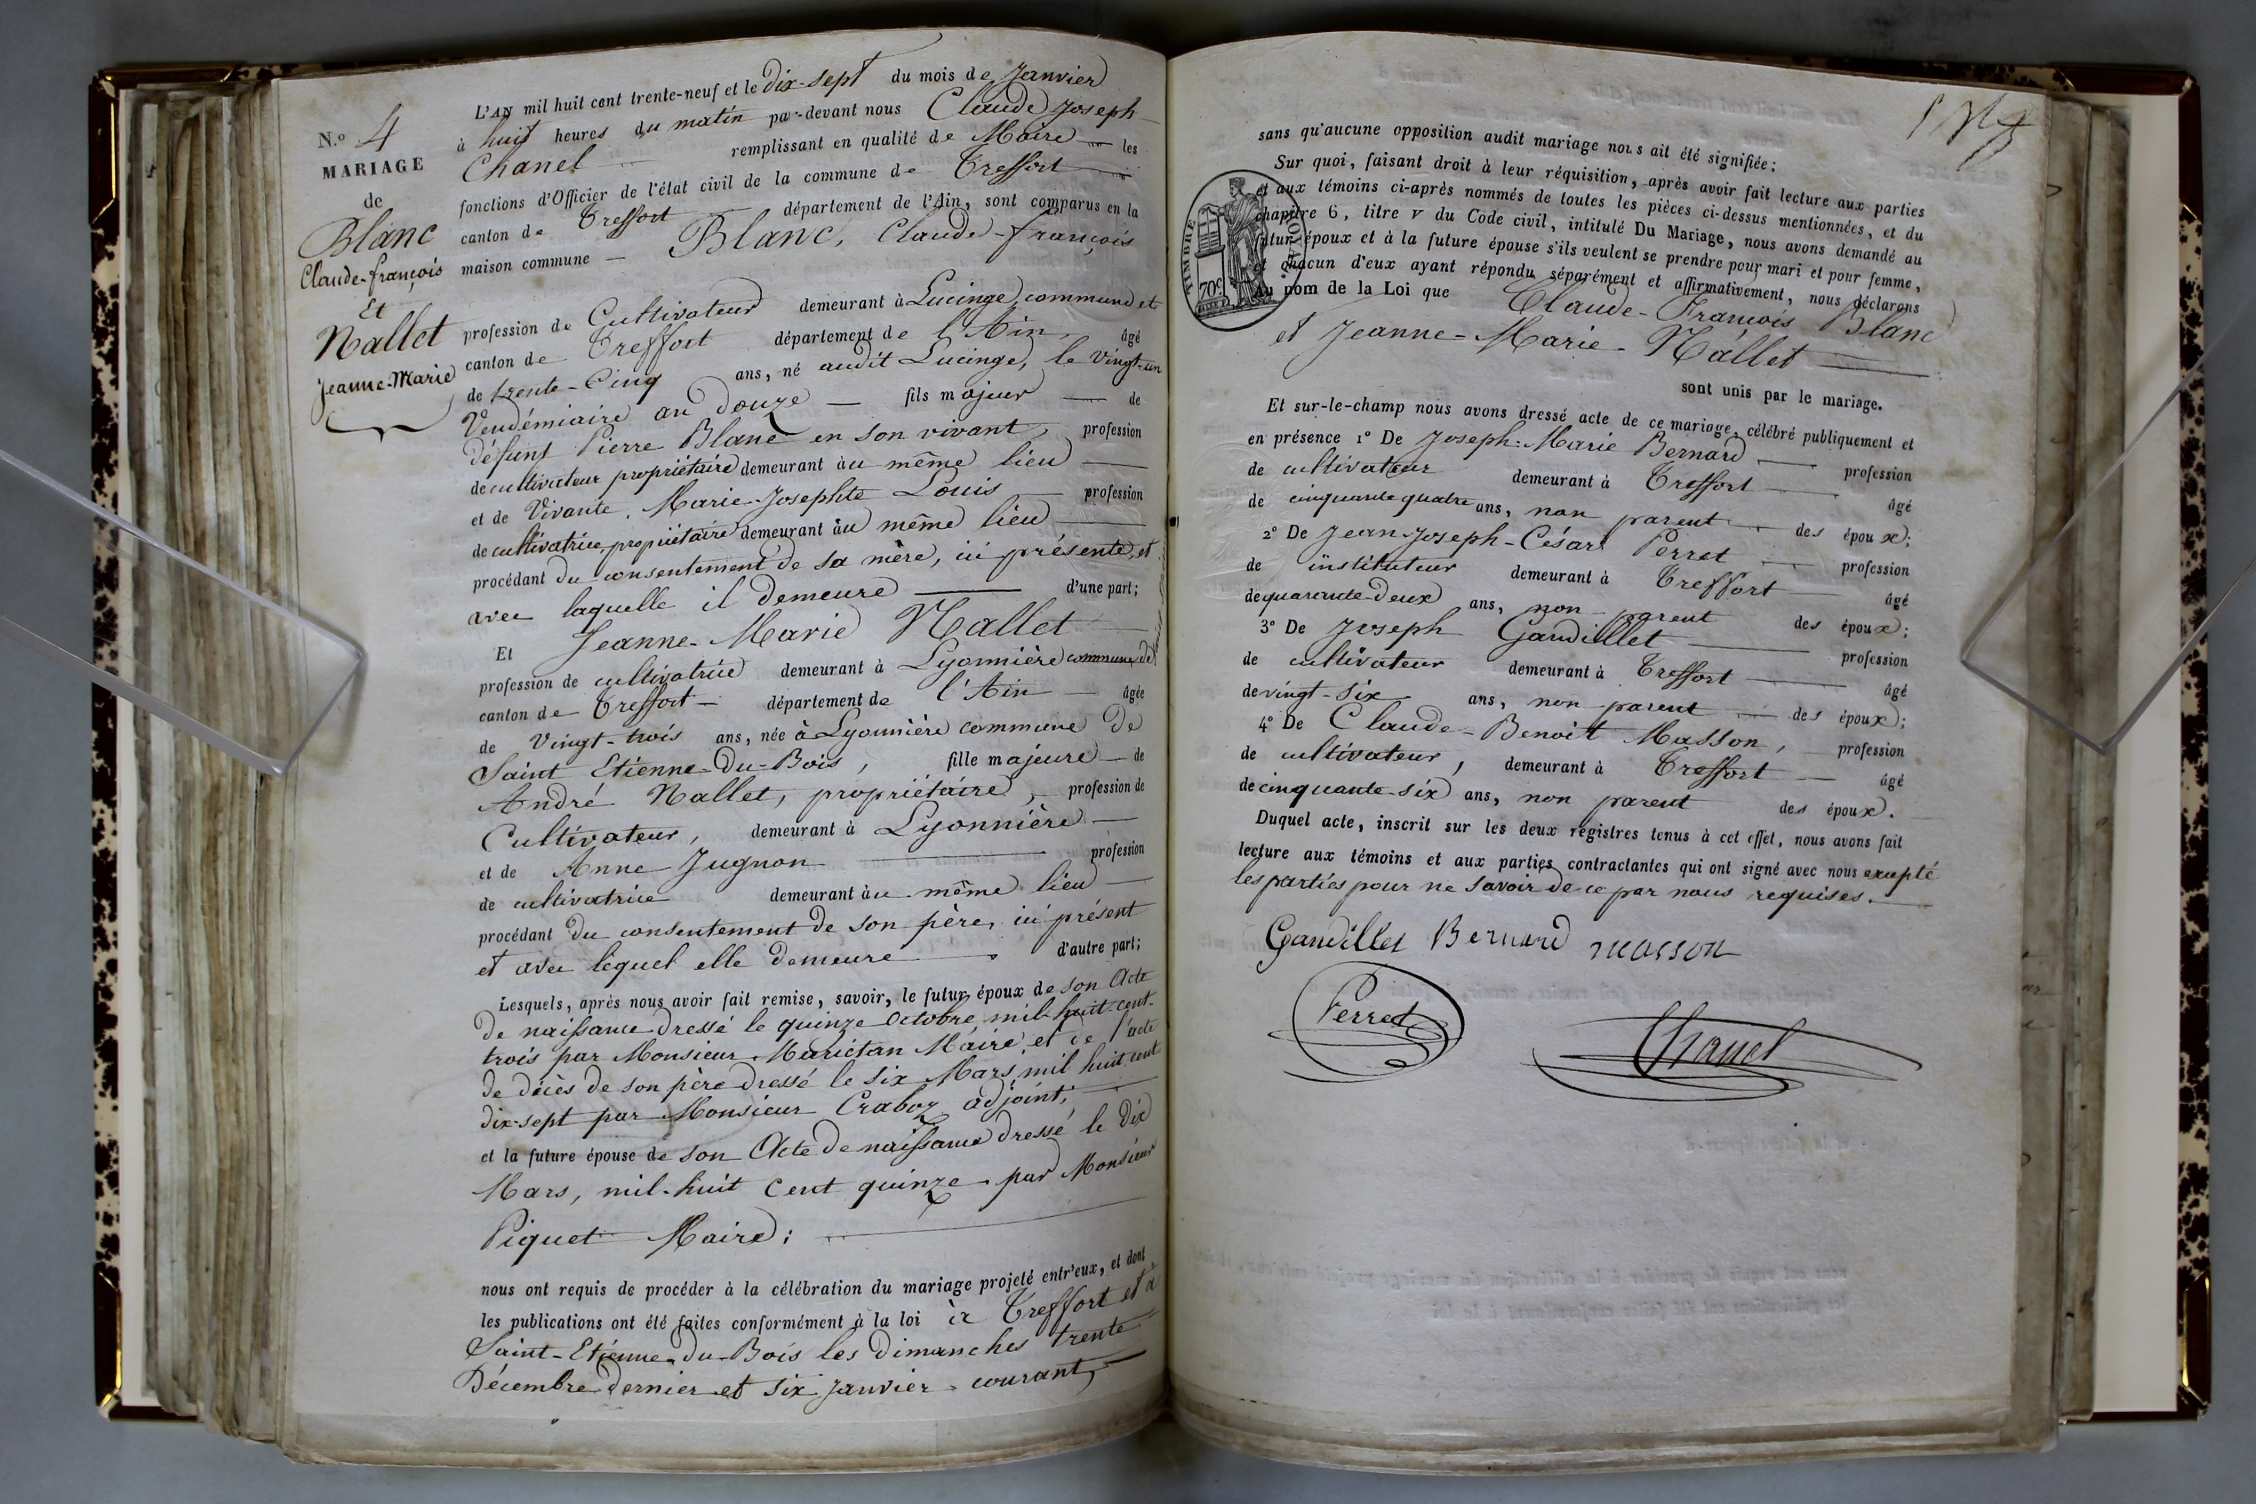 N.o 4
MARIAGE
de
Blanc
Claude-françois
Et
Nallet
Jeanne-Marie
L'AN mil huit cent trente-neuf et le dix-sept du mois de Janvier
à huit heures du matin par-devant nous Claude Joseph
Chanel remplissant en qualité de Maire les
fonctions d'Officier de l'état civil de la commune de Treffort
canton de Treffort département de l'Ain, sont comparus en la
maison commune — Blanc, Claude-françois
profession de Cultivateur demeurant à Lucinge, commune et
canton de Treffort département de l'Ain, âgé
de trente-Cinq ans, né audit Lucinge, le vingt-un
Vendémiaire an douze — fils majeur — de
défunt Pierre Blanc en son vivant, profession
de cultivateur propriétaire demeurant au même lieu —
et de Vivante, Marie-Josephte Louis — profession
de cultivatrice, propriétaire demeurant au même lieu —
procédant du consentement de sa mère, ici présente, et
avec laquelle il demeure — d'une part;
Et Jeanne-Marie Nallet —
profession de cultivatrice demeurant à Lyonnière commune de
canton de Treffort — département de l'Ain — âgée
de vingt-trois ans, née à Lyonnière commune de
Saint Etienne-du-Bois, fille majeure — de
André Nallet, propriétaire, profession de
Cultivateur, demeurant à Lyonnière —
et de Anne Jugnon — profession
de cultivatrice demeurant au même lieu —
procédant du consentement de son père, ici présent
et avec lequel elle demeure d'autre part;
Lesquels, après nous avoir fait remise, savoir, le futur époux de son Acte
de naissance dressé le quinze Octobre mil-huit-cent-
trois par Monsieur Mariétan Maire, et de l'acte
de décès de son père dressé le six Mars mil huit cent
dix-sept par Monsieur Craboz adjoint; —
et la future épouse de son Acte de naissance dressé le dix
Mars, mil-huit cent quinze par Monsieur
Piquet Maire; —
nous ont requis de procéder à la célébration du mariage projeté entr'eux, et dont
les publications ont été faites conformément à la loi à Treffort et à
Saint-Etienne-du-Bois les dimanches trente
Décembre dernier et six Janvier courant, —
sans qu'aucune opposition audit mariage nous ait été signifiée;
Sur quoi, faisant droit à leur réquisition, après avoir fait lecture aux parties
et aux témoins ci-après nommés de toutes les pièces ci-dessus mentionnées, et du
chapitre 6, titre v du Code civil, intitulé Du Mariage, nous avons demandé au
futur époux et à la future épouse s'ils veulent se prendre pour mari et pour femme,
et chacun d'eux ayant répondu séparément et affirmativement, nous déclarons
au nom de la Loi que Claude-François Blanc
et Jeanne-Marie-Nallet —
sont unis par le mariage.
TIMBRE ROYAL
70c
Et sur-le-champ nous avons dressé acte de ce mariage, célébré publiquement et
en présence 1° De Joseph-Marie Bernard — profession
de cultivateur demeurant à Treffort — âgé
de cinquante quatre ans, non parent des époux;
2° De Jean-Joseph-César Perret profession
de instituteur demeurant à Treffort — âgé
de quarante-deux ans, non parent des époux;
3° De Joseph Gandillet — profession
de cultivateur demeurant à Treffort — âgé
de vingt-six ans, non parent des époux;
4° De Claude-Benoît Masson, — profession
de cultivateur, demeurant à Treffort — âgé
de cinquante-six ans, non parent des époux.
Duquel acte, inscrit sur les deux registres tenus à cet effet, nous avons fait
lecture aux témoins et aux parties contractantes qui ont signé avec nous excepté
les parties pour ne savoir de ce par nous requises. —
Gandillet Bernard masson
Perret
Chanel